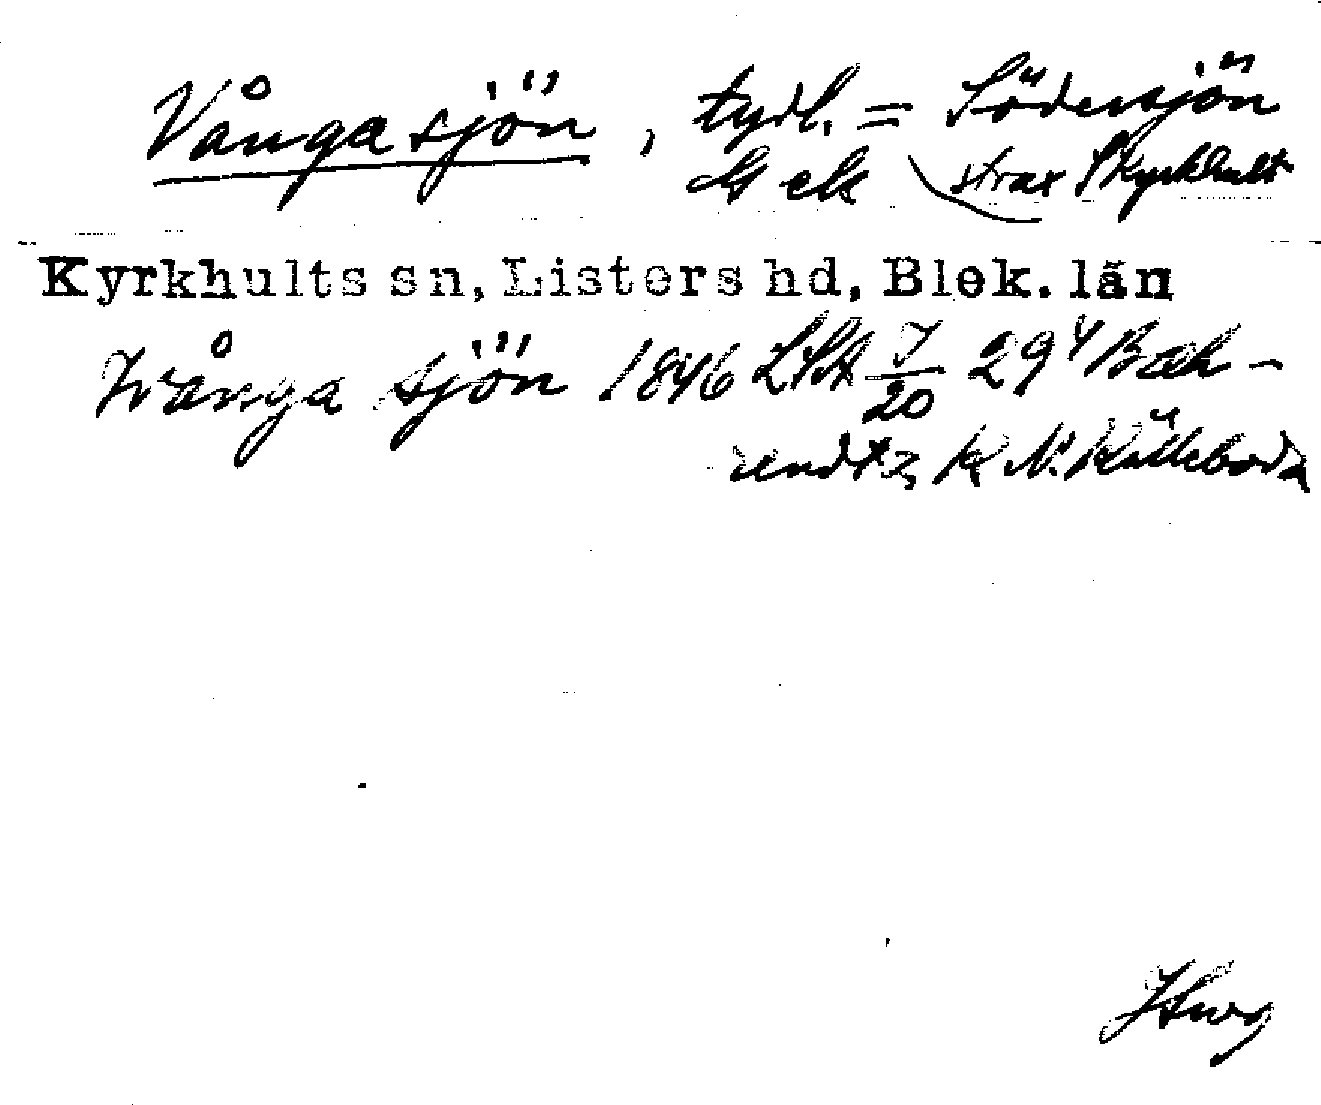 Vångasjön, tydl. = Södersjön
G ek strax S Kyrkhult
Kyrkhults sn, Listers hd, Blek. län
Wånga sjön 1846 LSA J/20 29 4 Bæh-
rendtz, K N. Källeboda